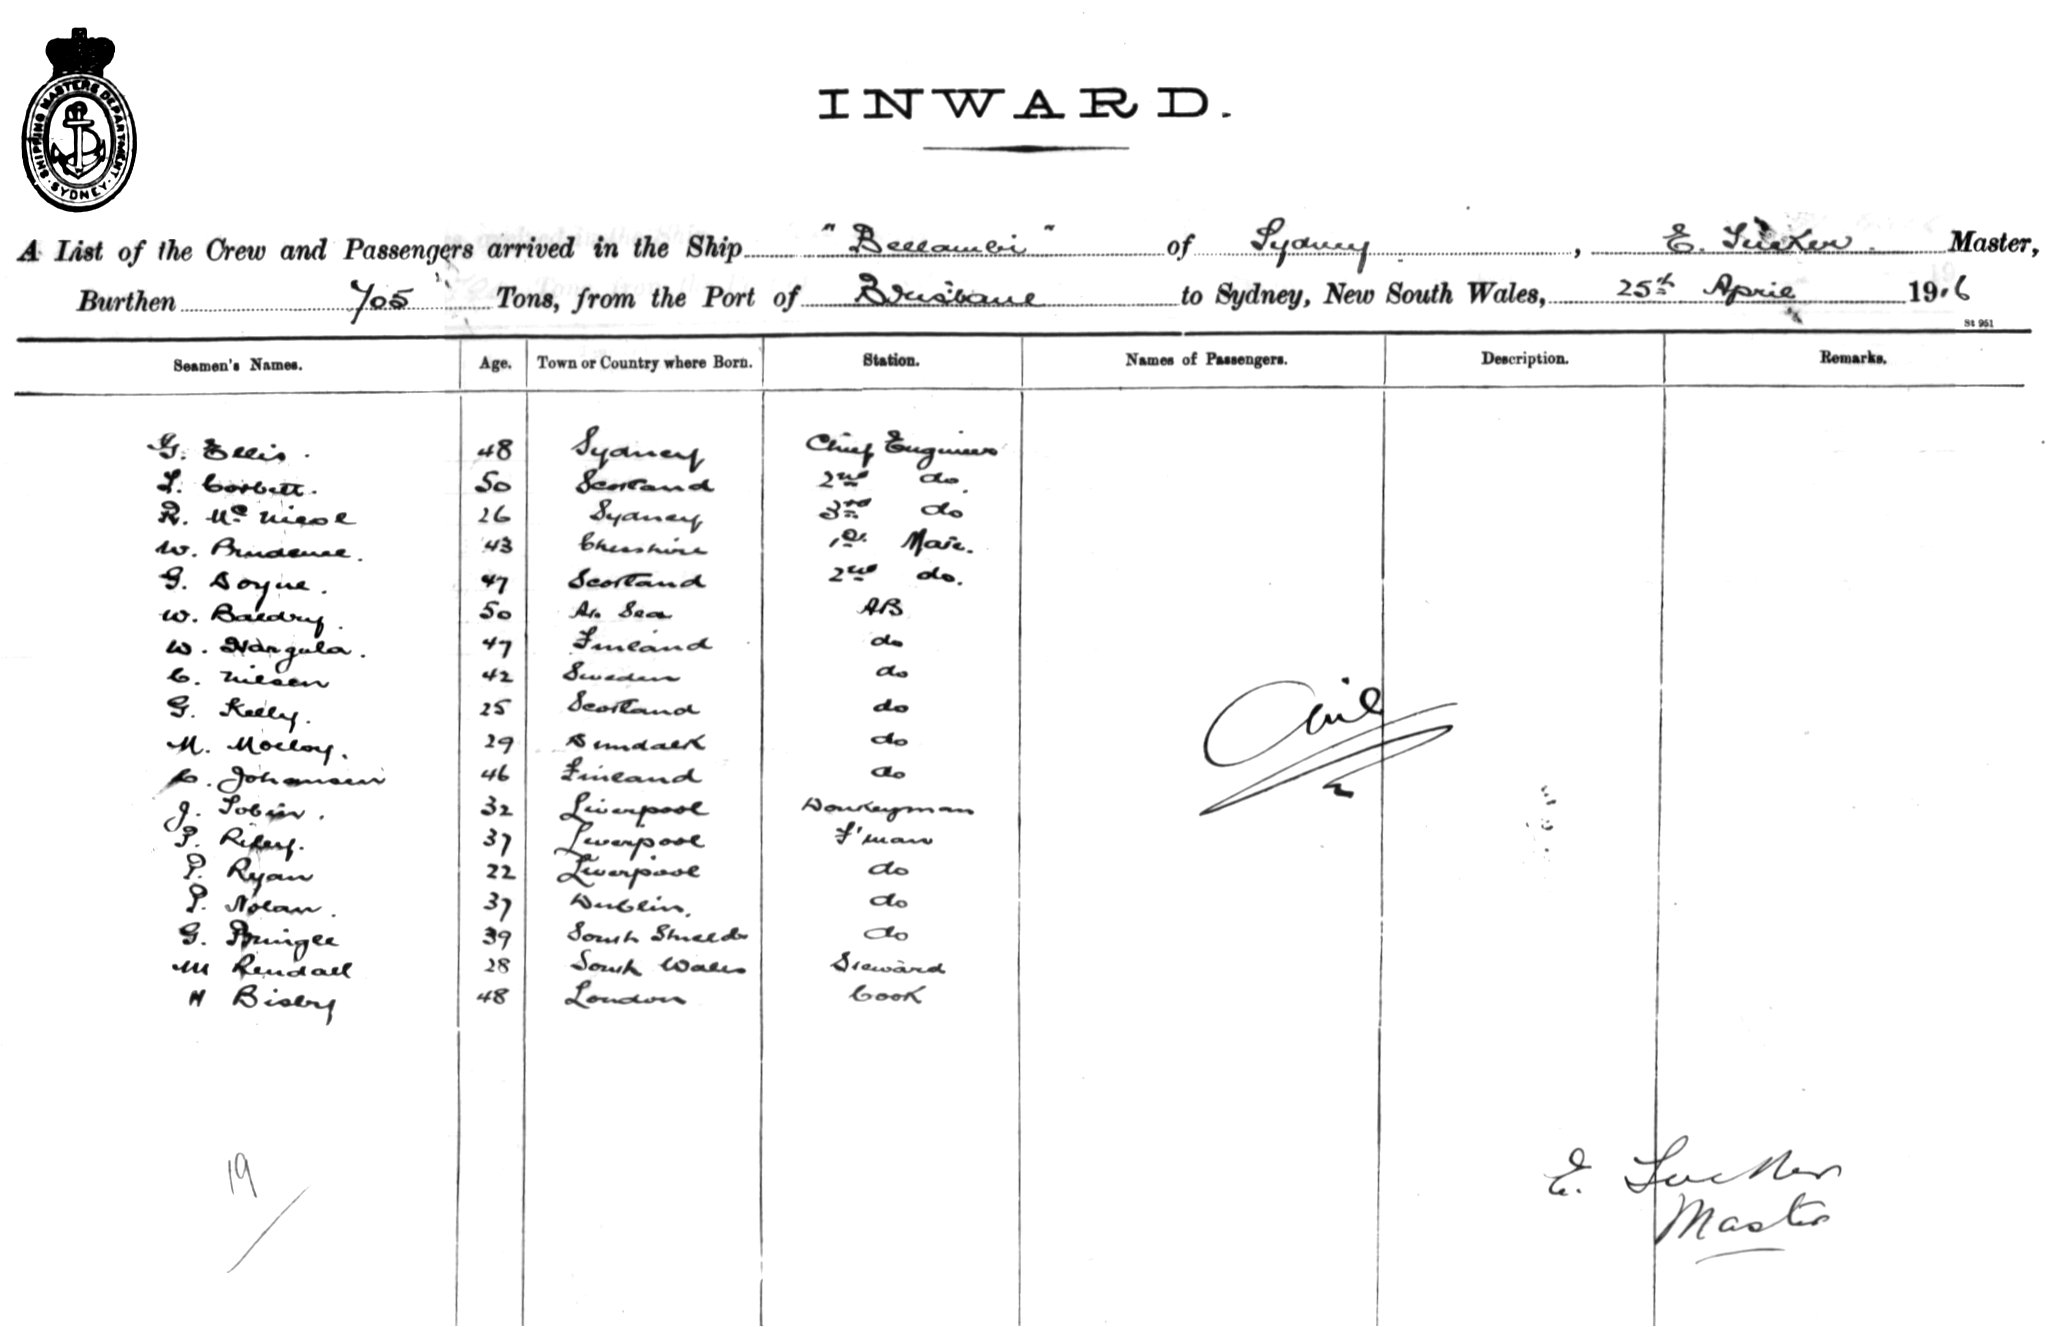 SHIPPING MASTERS DEPARTMENT. SYDNEY.
INWARD.
A List of the Crew and Passengers arrived in the Ship "Bellambi" of Sydney, E. Tucker Master,
Burthen 705 Tons, from the Port of Brisbane to Sydney, New South Wales, 25th April 19.6
St 951
Seamen's Names. Age. Town or Country where Born. Station. Names of Passengers. Description. Remarks.
G. Ellis. 48 Sydney Chief Engineer
L. Corbett. 50 Scotland 2nd do.
R. McNicol 26 Sydney 3rd do
W. Prudence. 43 Cheshire 1st Mate.
G. Doyne. 47 Scotland 2nd do.
W. Baldry. 50 At Sea AB
W. Hangula. 47 Finland do
C. Nielsen 42 Sweden do
G. Kelly. 25 Scotland do
M. Molloy. 29 Dundalk do
C. Johansen 46 Finland do
J. Tobin. 32 Liverpool Donkeyman
P. Riley. 37 Liverpool F'man
P. Ryan 22 Liverpool do
P. Nolan. 37 Dublin. do
G. Pringle 39 South Shields do
M Rendall 28 South Wales Steward
H Bisby 48 London Cook
Nil
19
E. Tucker
Master